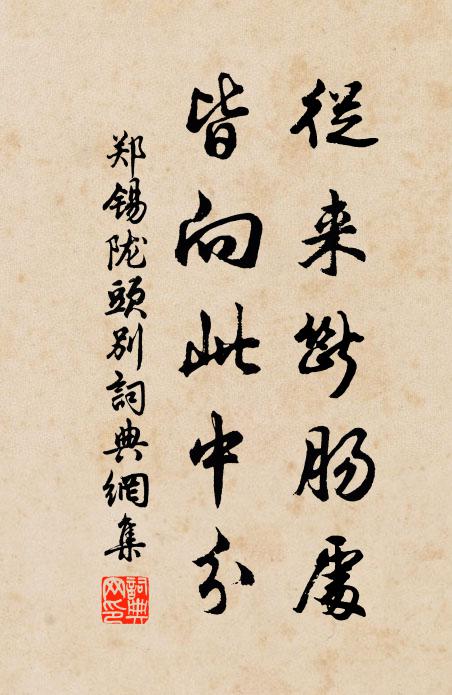 從来斷肠處
皆向此中分
郑锡陇頭别詞典網集
詞典网印